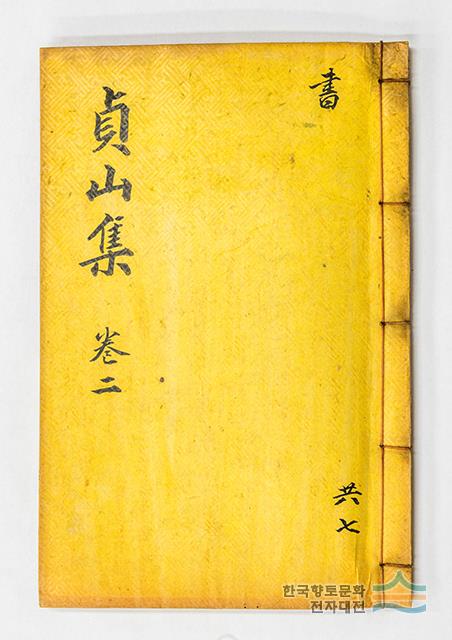 書
貞山集 卷二
共七
한국향토문화
전자대전